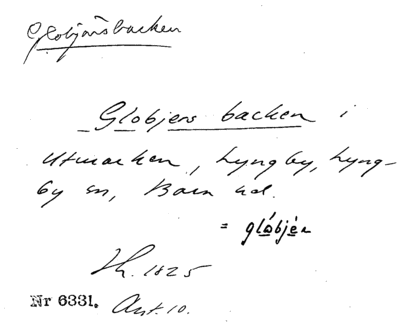 Globjörsbacken
Globjers backen i
Utmarken, Lyngby, Lyng-
by sn, Bara hd.
= glóbjér
Lh. 1825
Nr 6331. Ant. 10.